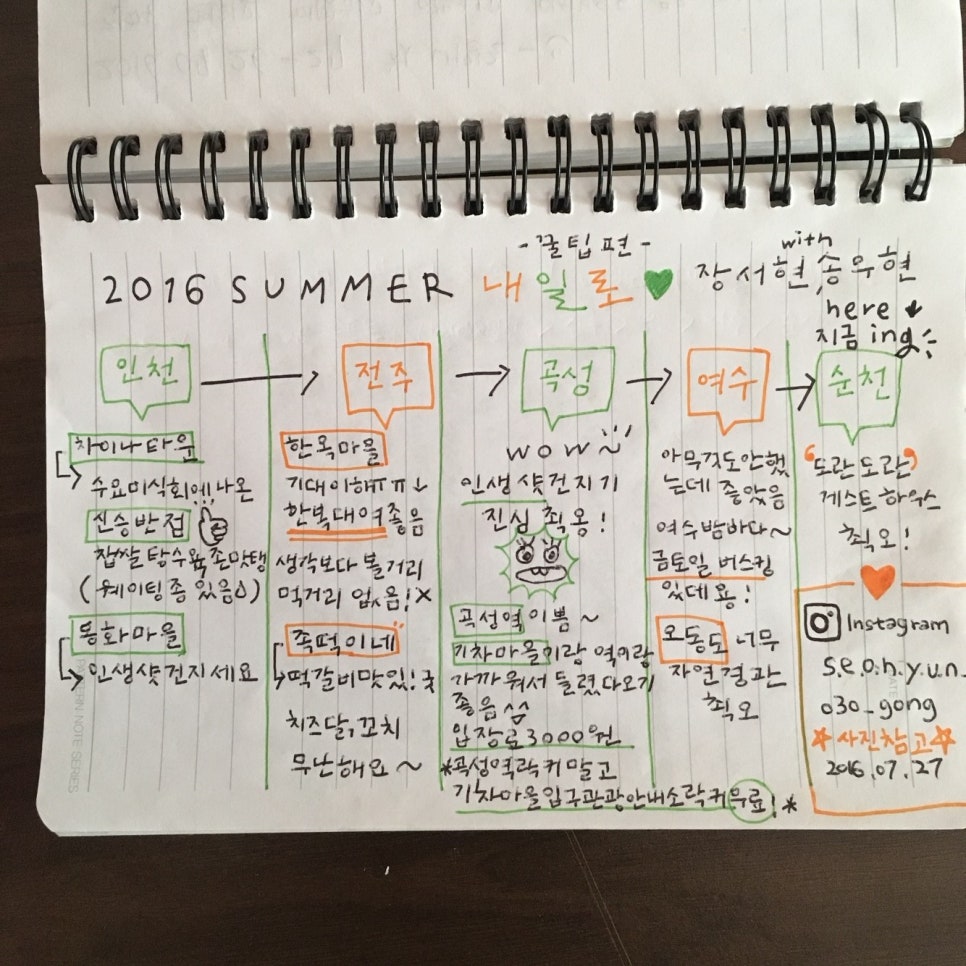 - 꿀팁편 -
2016 SUMMER 내일로 with 장서현, 송우현
here
지금 ing
인천
차이나타운
수요미식회에 나온
신승반점
찹쌀탕수육 존맛탱
(웨이팅 좀 있음)
동화마을
인생샷건지세요
전주
한옥마을
기대이하ㅠㅠ↓
한복대여좋음
생각보다 볼거리
먹거리 없음! X
족떡이네
떡갈비맛있!굿
치즈닭꼬치
무난해요~
곡성
wow
인생샷건지기
진심 쵝옹!
곡성역이쁨~
기차마을이랑 역이랑
가까워서 들렸다오기
좋음
입장료3000원
*곡성역락커말고
기차마을입구관광안내소락커무료!*
여수
아무것도안했
는데 좋았음
여수밤바다~
금토일 버스킹
있데용!
오동도 너무
자연경관
쵝오
순천
'도란도란'
게스트하우스
쵝오!
Instagram
s.e.o.n.y.u.n_
030_gong
☆사진참고☆
2016.07.27